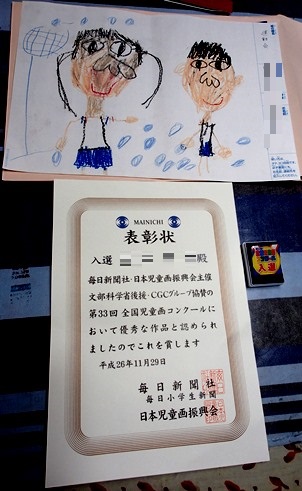 MAINICHI
表彰状
入選 殿
毎日新聞社・日本児童画振興会主催
文部科学省後援・CGCグループ協賛の
第33回 全国児童画コンクールに
おいて優秀な作品と認められ
ましたのでこれを賞します
平成26年11月29日
毎日新聞社
毎日小学生新聞
日本児童画振興会
入選